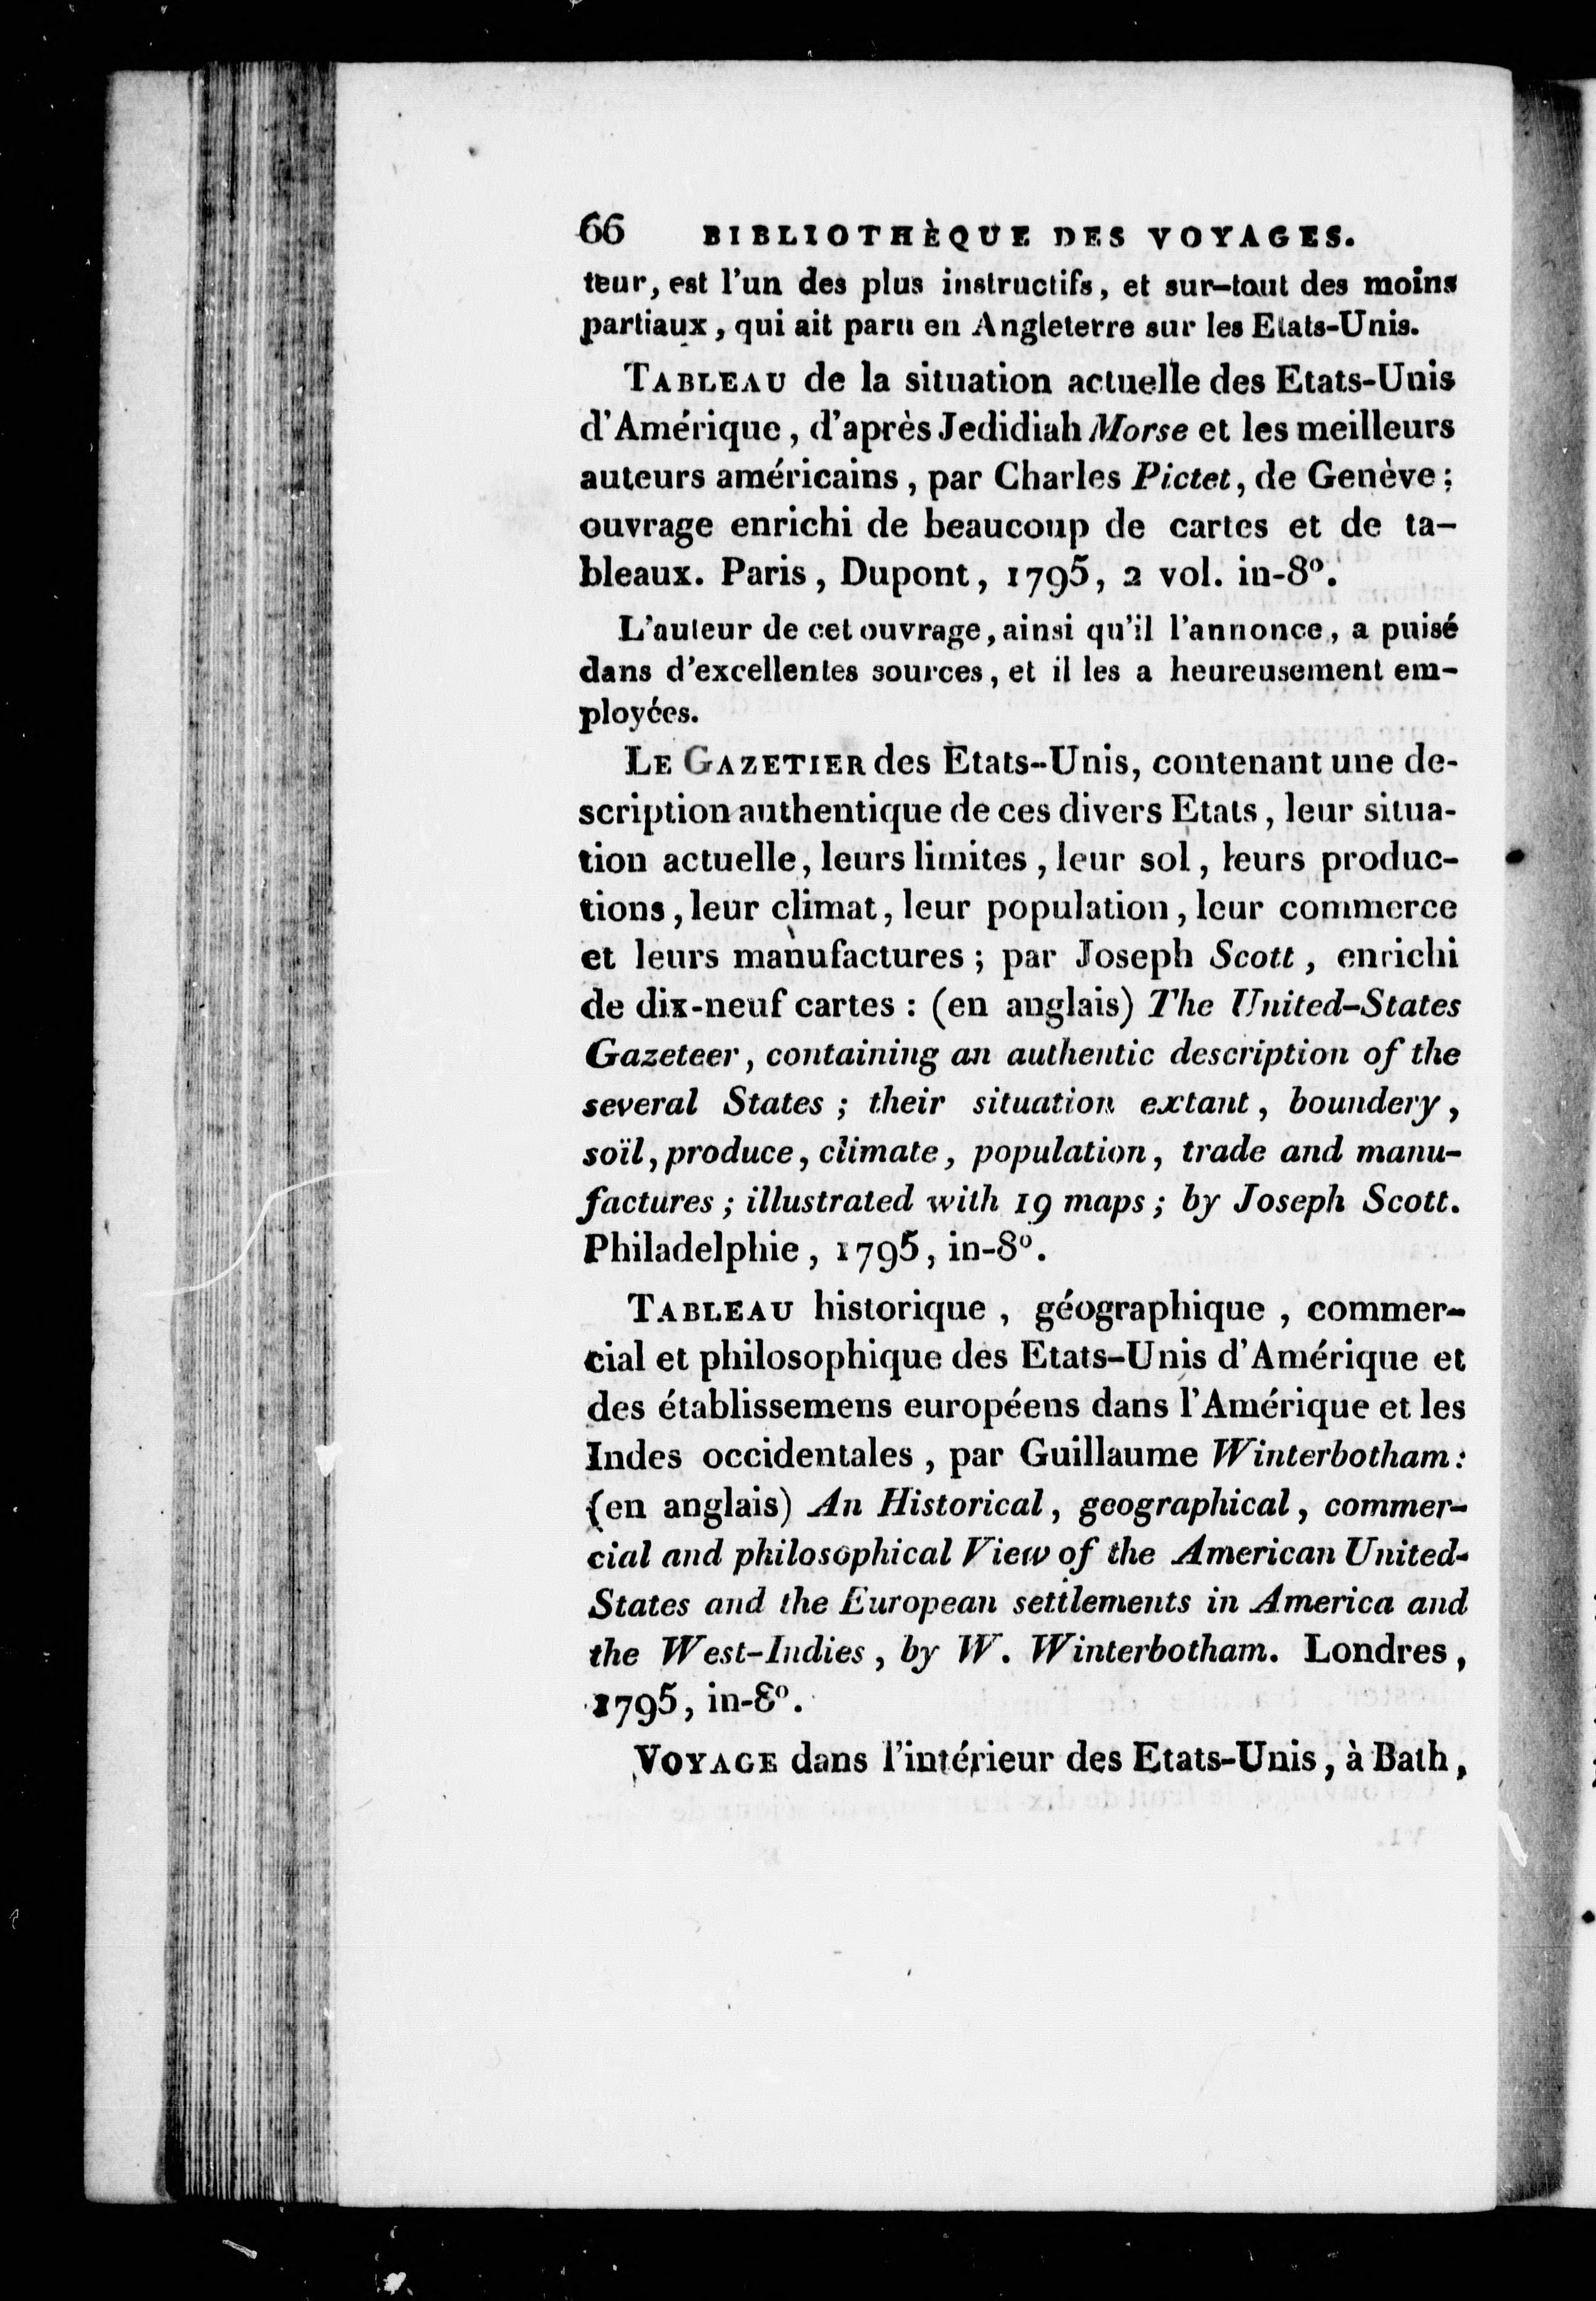 66 BIBLIOTHÈQUE DES VOYAGES.
teur, est l'un des plus instructifs, et sur-tout des moins
partiaux, qui ait paru en Angleterre sur les Etats-Unis.
TABLEAU de la situation actuelle des Etats-Unis
d'Amérique, d'après Jedidiah Morse et les meilleurs
auteurs américains, par Charles Pictet, de Genève;
ouvrage enrichi de beaucoup de cartes et de ta-
bleaux. Paris, Dupont, 1795, 2 vol. in-8°.
L'auteur de cet ouvrage, ainsi qu'il l'annonce, a puisé
dans d'excellentes sources, et il les a heureusement em-
ployées.
LE GAZETIER des Etats-Unis, contenant une de-
scription authentique de ces divers Etats, leur situa-
tion actuelle, leurs limites, leur sol, leurs produc-
tions, leur climat, leur population, leur commerce
et leurs manufactures; par Joseph Scott, enrichi
de dix-neuf cartes : (en anglais) The United-States
Gazeteer, containing an authentic description of the
several States; their situation extant, boundery,
soïl, produce, climate, population, trade and manu-
factures; illustrated with 19 maps; by Joseph Scott.
Philadelphie, 1795, in-8°.
TABLEAU historique, géographique, commer-
cial et philosophique des Etats-Unis d'Amérique et
des établissemens européens dans l'Amérique et les
Indes occidentales, par Guillaume Winterbotham:
(en anglais) An Historical, geographical, commer-
cial and philosophical View of the American United-
States and the European settlements in America and
the West-Indies, by W. Winterbotham. Londres,
1795, in-8°.
VOYAGE dans l'intérieur des Etats-Unis, à Bath,